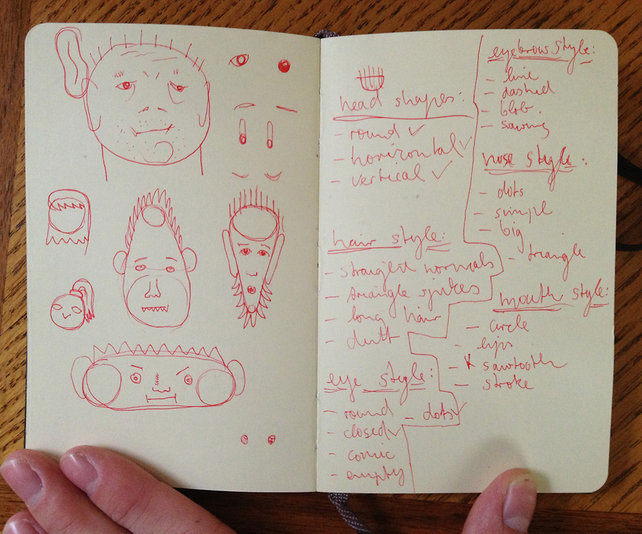 head shapes:
- round ✓
- horizontal ✓
- vertical ✓
hair style:
- straight normals
- triangle spikes
- long hair
- dutt
eye style:
- round
- dots ✓
- closed ✓
- comic
- empty
eyebrow style:
- line
- dashed
- blob
nose style:
- dots
- simpl
- big
- triangle
mouth style:
- circle
- lips
- sawtooth
- stroke